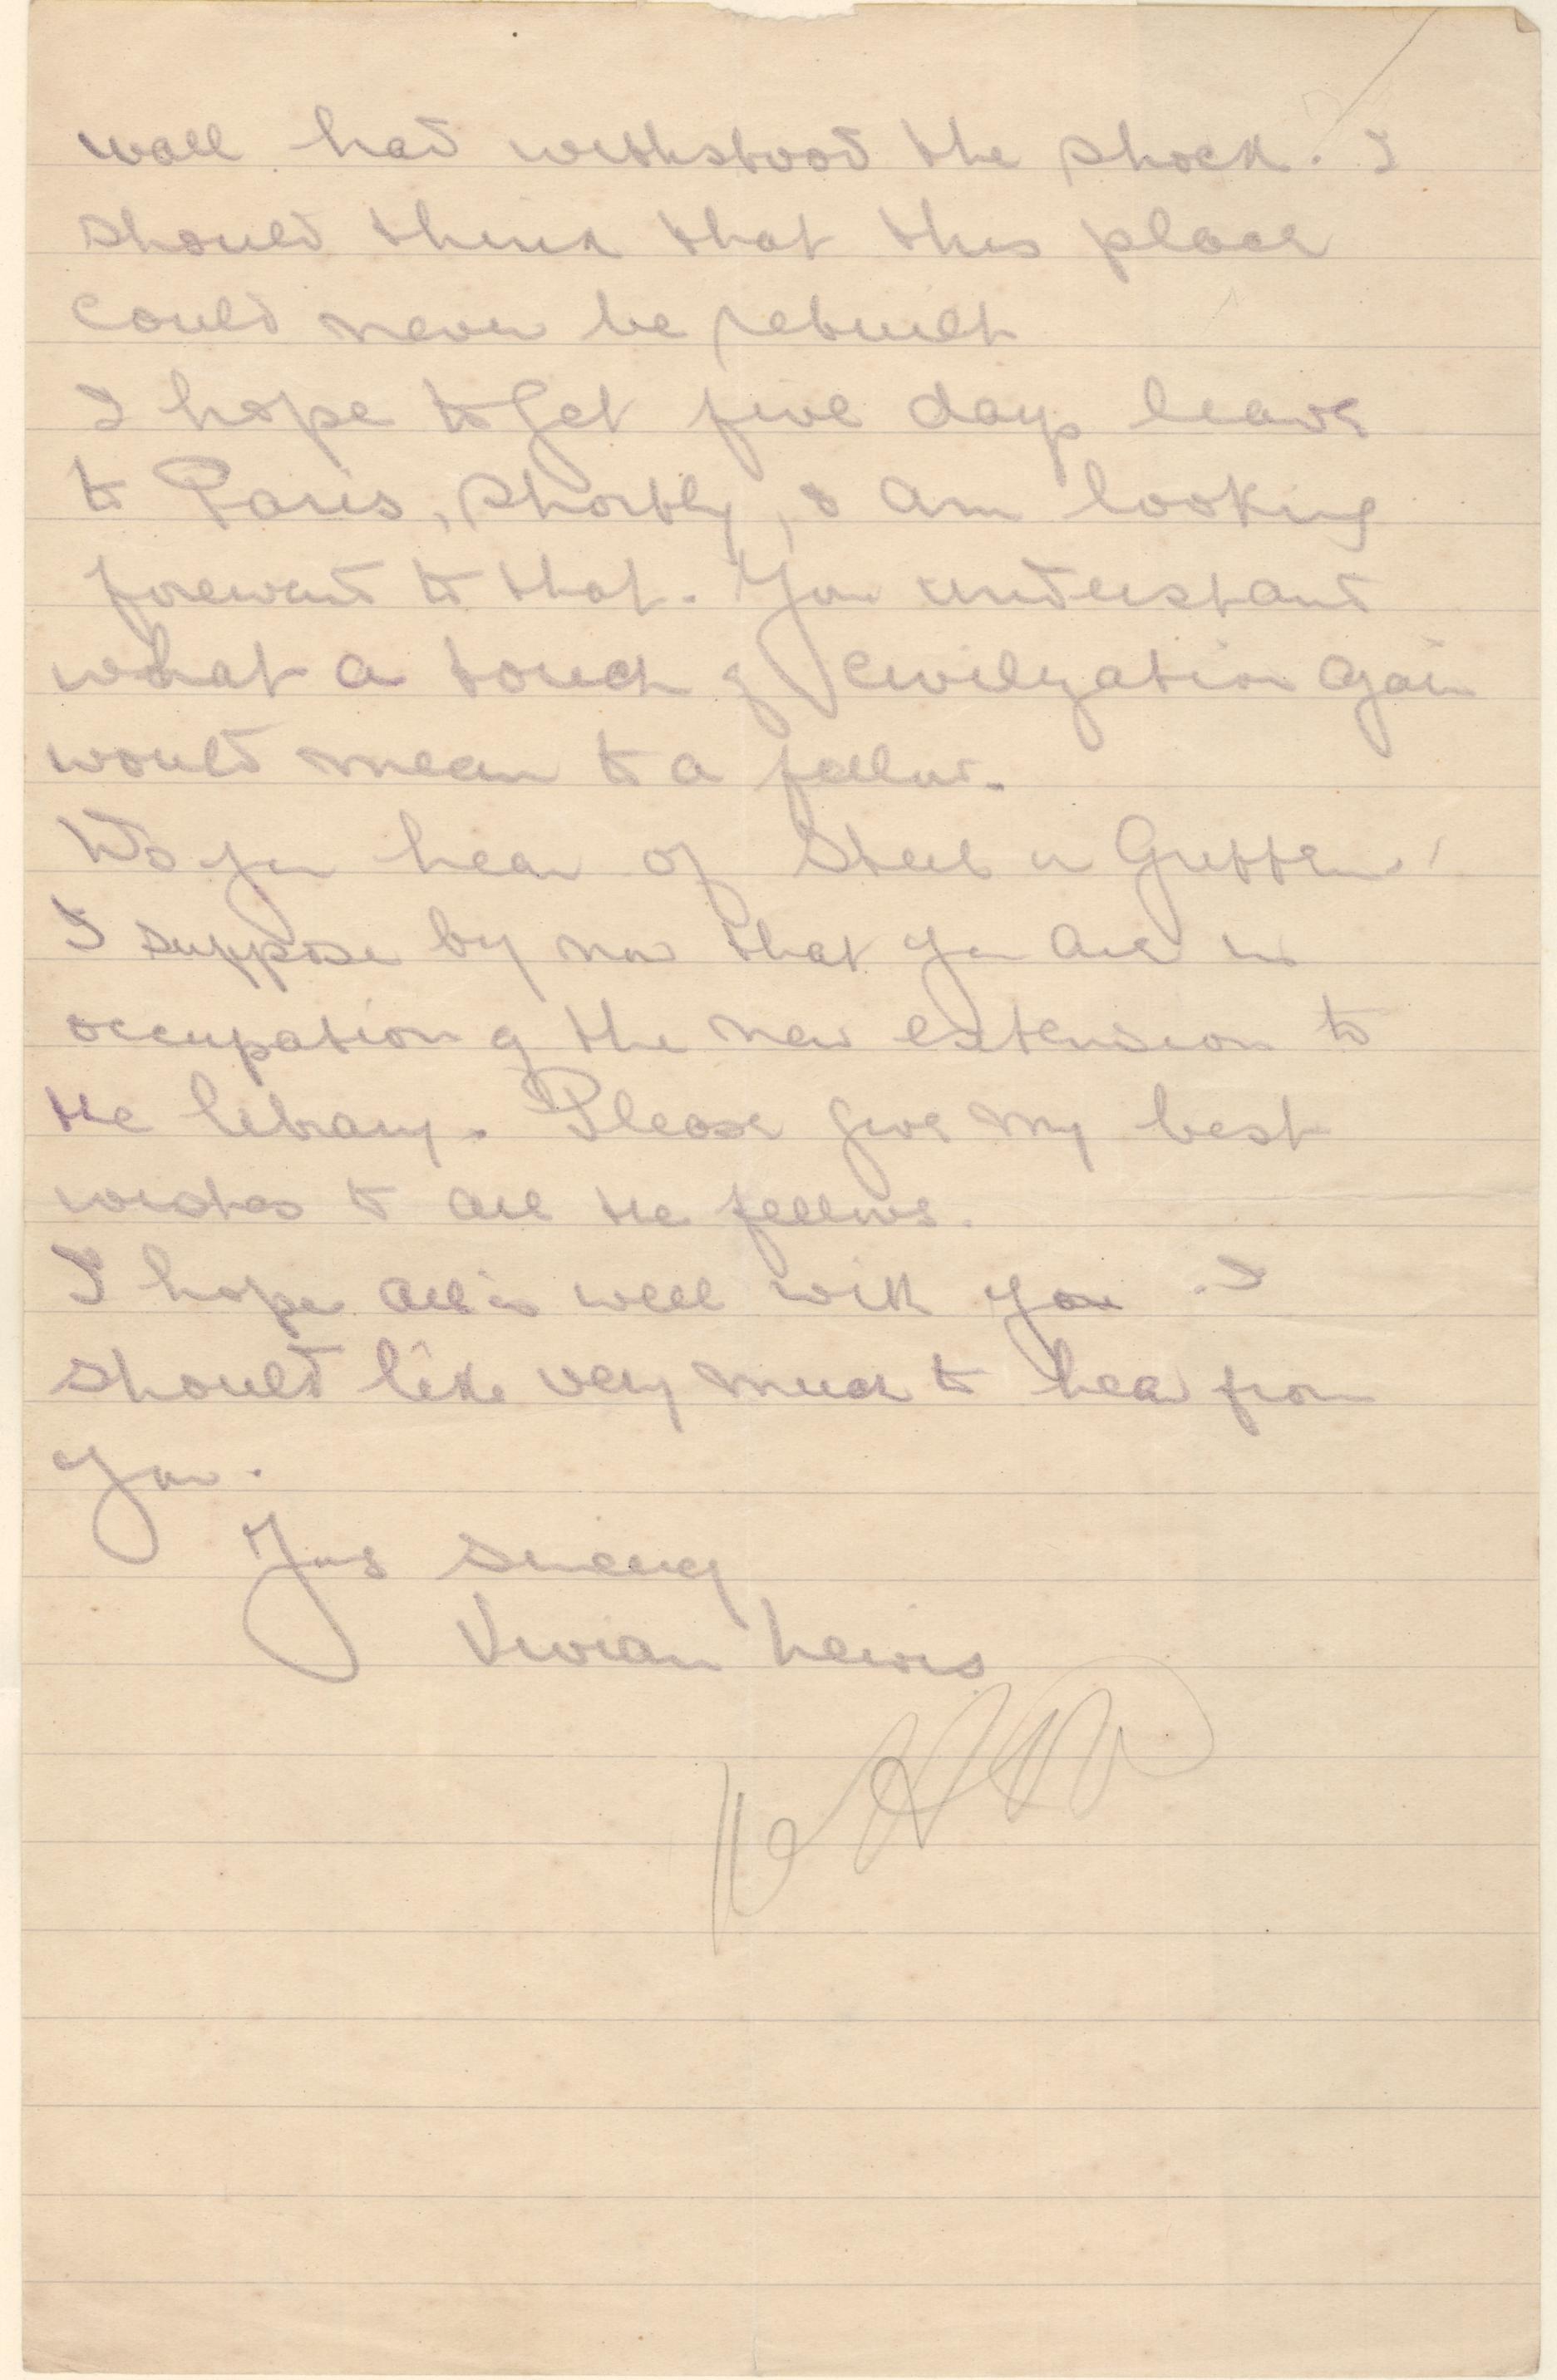 wall had withstood the shock. I
should think that this place
could never be rebuilt
I hope to get five days leave
to Paris, shortly, & am looking
foreward to that. You understand
what a touch of civilyzation again
would mean to a fellow.
Do you hear of Steel or
I suppose by now that you are in
occupation of the new extension to
the library. Please give my best
wishes to all the fellows.
I hope all is well with you. I
should like very much to hear from
you.
Yours sincerely
Vivian Lewis